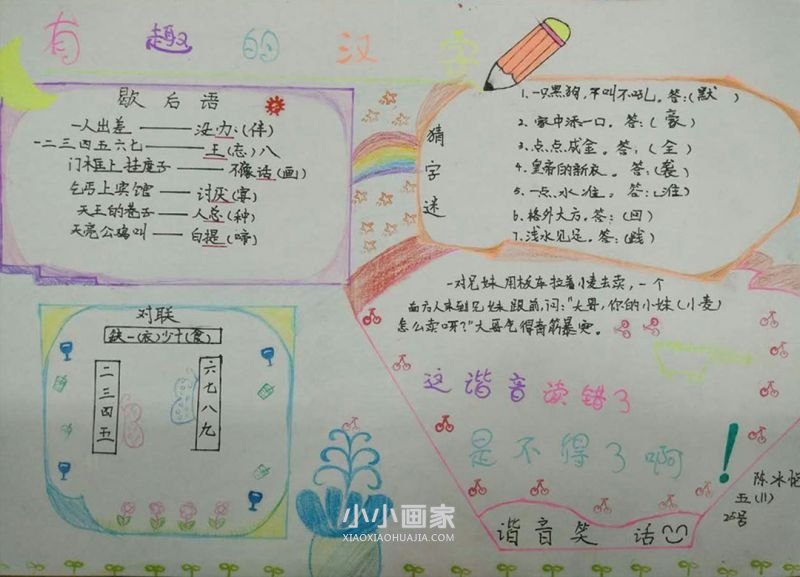 有趣的汉字
歇后语
一人出差——没办(伴)
一二三四五六七——王(忘)八
门框上挂席子——不像话(画)
乞丐上宾馆——讨厌(宴)
天王的巷子——人总(种)
天亮公鸡叫——白提(啼)
猜字迷
1.一只黑狗,不叫不吼。答:(默)
2.家中添一口。答:(豪)
3.点点成金。答:(全)
4.皇帝的新衣。答:(袭)
5.一点水准。答:(淮)
6.格外大方。答:(回)
7.浅水见足。答:(践)
对联
缺一(衣)少十(食)
二三四五
六七八九
一对兄妹用板车拉着小麦出卖,一个
南方人来到兄妹跟前,问:"大哥,你的小妹(小麦)
怎么卖呀?"大哥气得青筋暴突。
这谐音读错了
是不得了啊!
谐音笑话
陈冰
五(11)
25号
小小画家
XIAOXIAOHUAJIA.COM